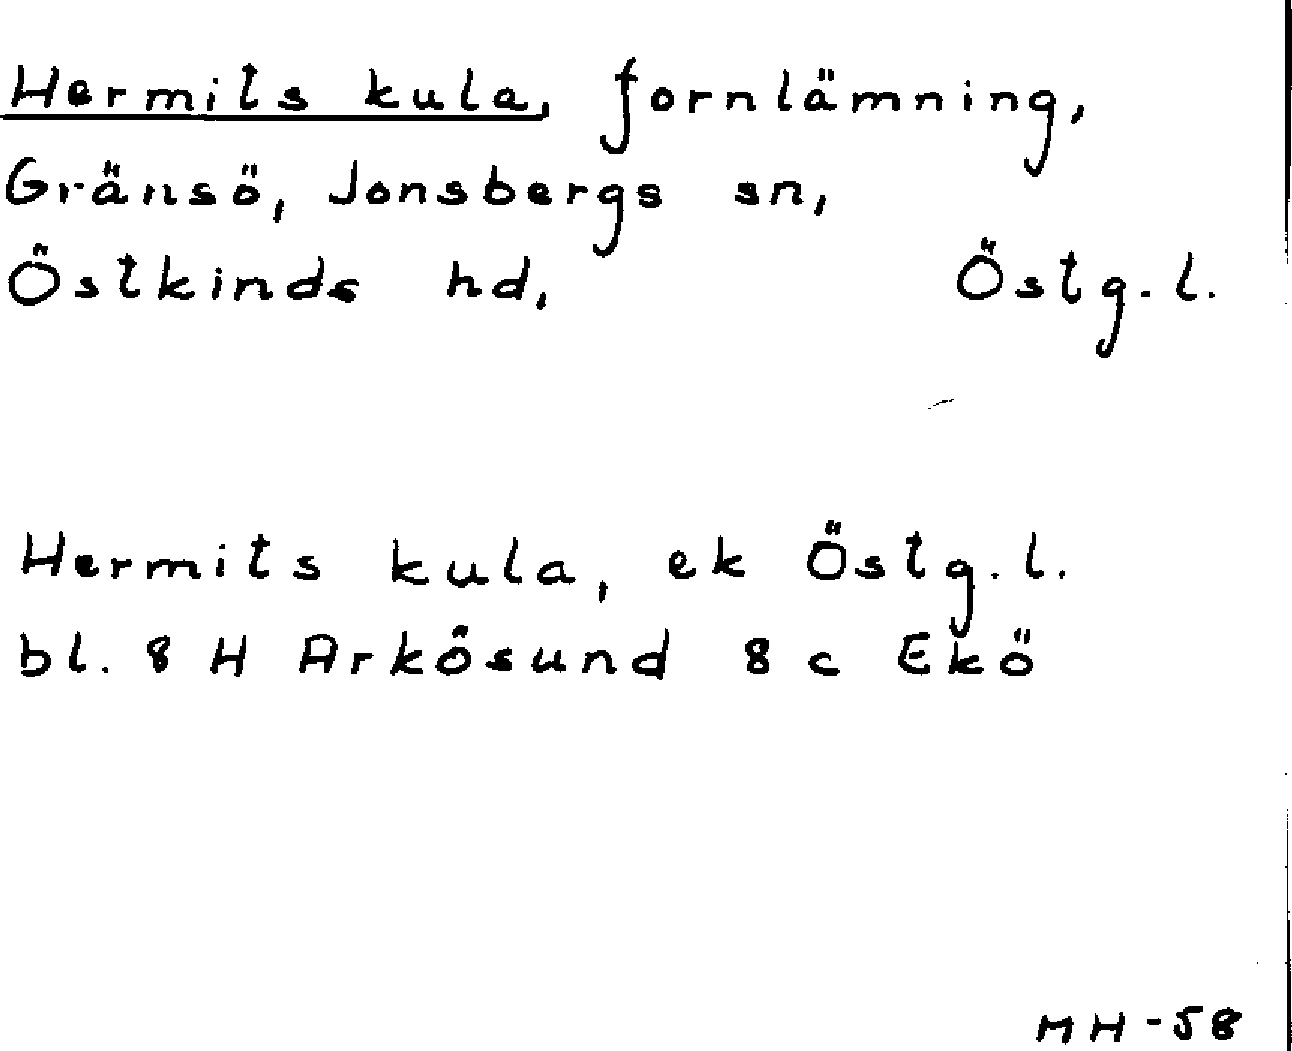 Hermits kula, fornlämning,
Gränsö, Jonsbergs sn,
Östkinds hd, Östg.l.
Hermits kula, ek Östg.l.
bl. 8 H Arkösund 8 c Ekö
MH-58